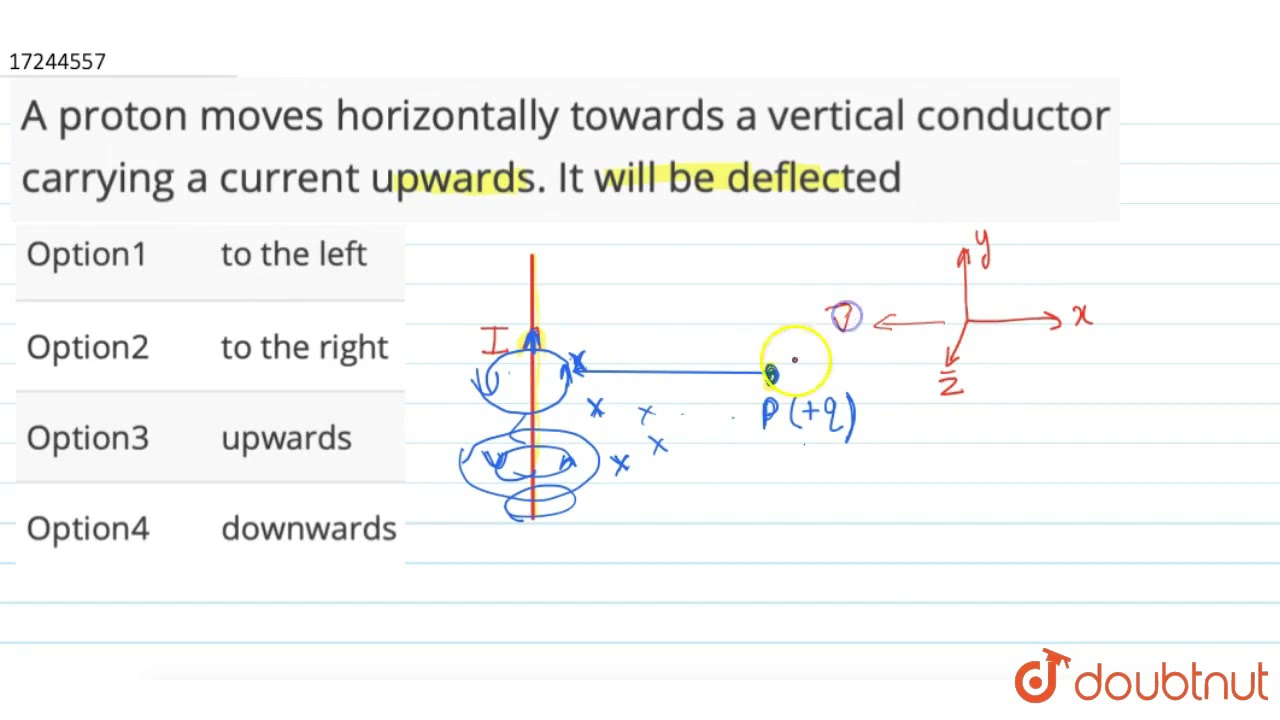 17244557
A proton moves horizontally towards a vertical conductor
carrying a current upwards. It will be deflected
Option1 to the left
Option2 to the right
Option3 upwards
Option4 downwards
y
x
z
I
P (+q)
doubtnut